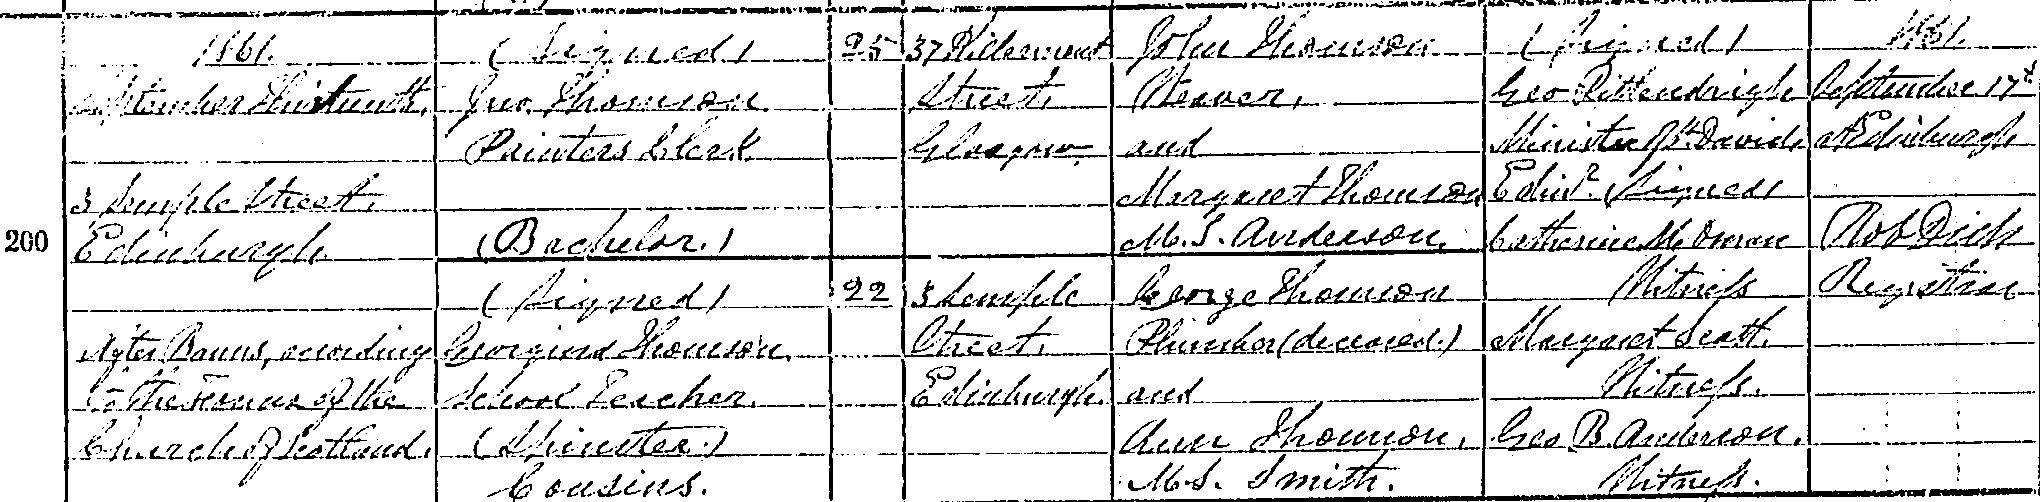 200
1861.
September Thirteenth,
3 Semple Street,
Edinburgh.
After Banns, according
to the Forms of the
Church of Scotland.
(Signed)
Jno. Thomson
Printers Clerk
(Bachelor.)
(Signed)
Georgina Thomson.
School Teacher.
(Spinster.)
Cousins.
25
22
37
Street,
Glasgow.
3 Semple
Street,
Edinburgh.
John Thomson
Weaver,
and
Margaret Thomson
M.S. Anderson.
George Thomson
Plumber (deceased.)
and
Ann Thomson,
M.S. Smith.
(Signed)
Geo Pittendrigh
Minister of St. Davids,
Edinr. (Signed)
Catherine
Witness
Margaret Scott.
Witness.
Geo B. Anderson.
Witness.
1861.
September 17th
At Edinburgh
Rob Dick
Registrar